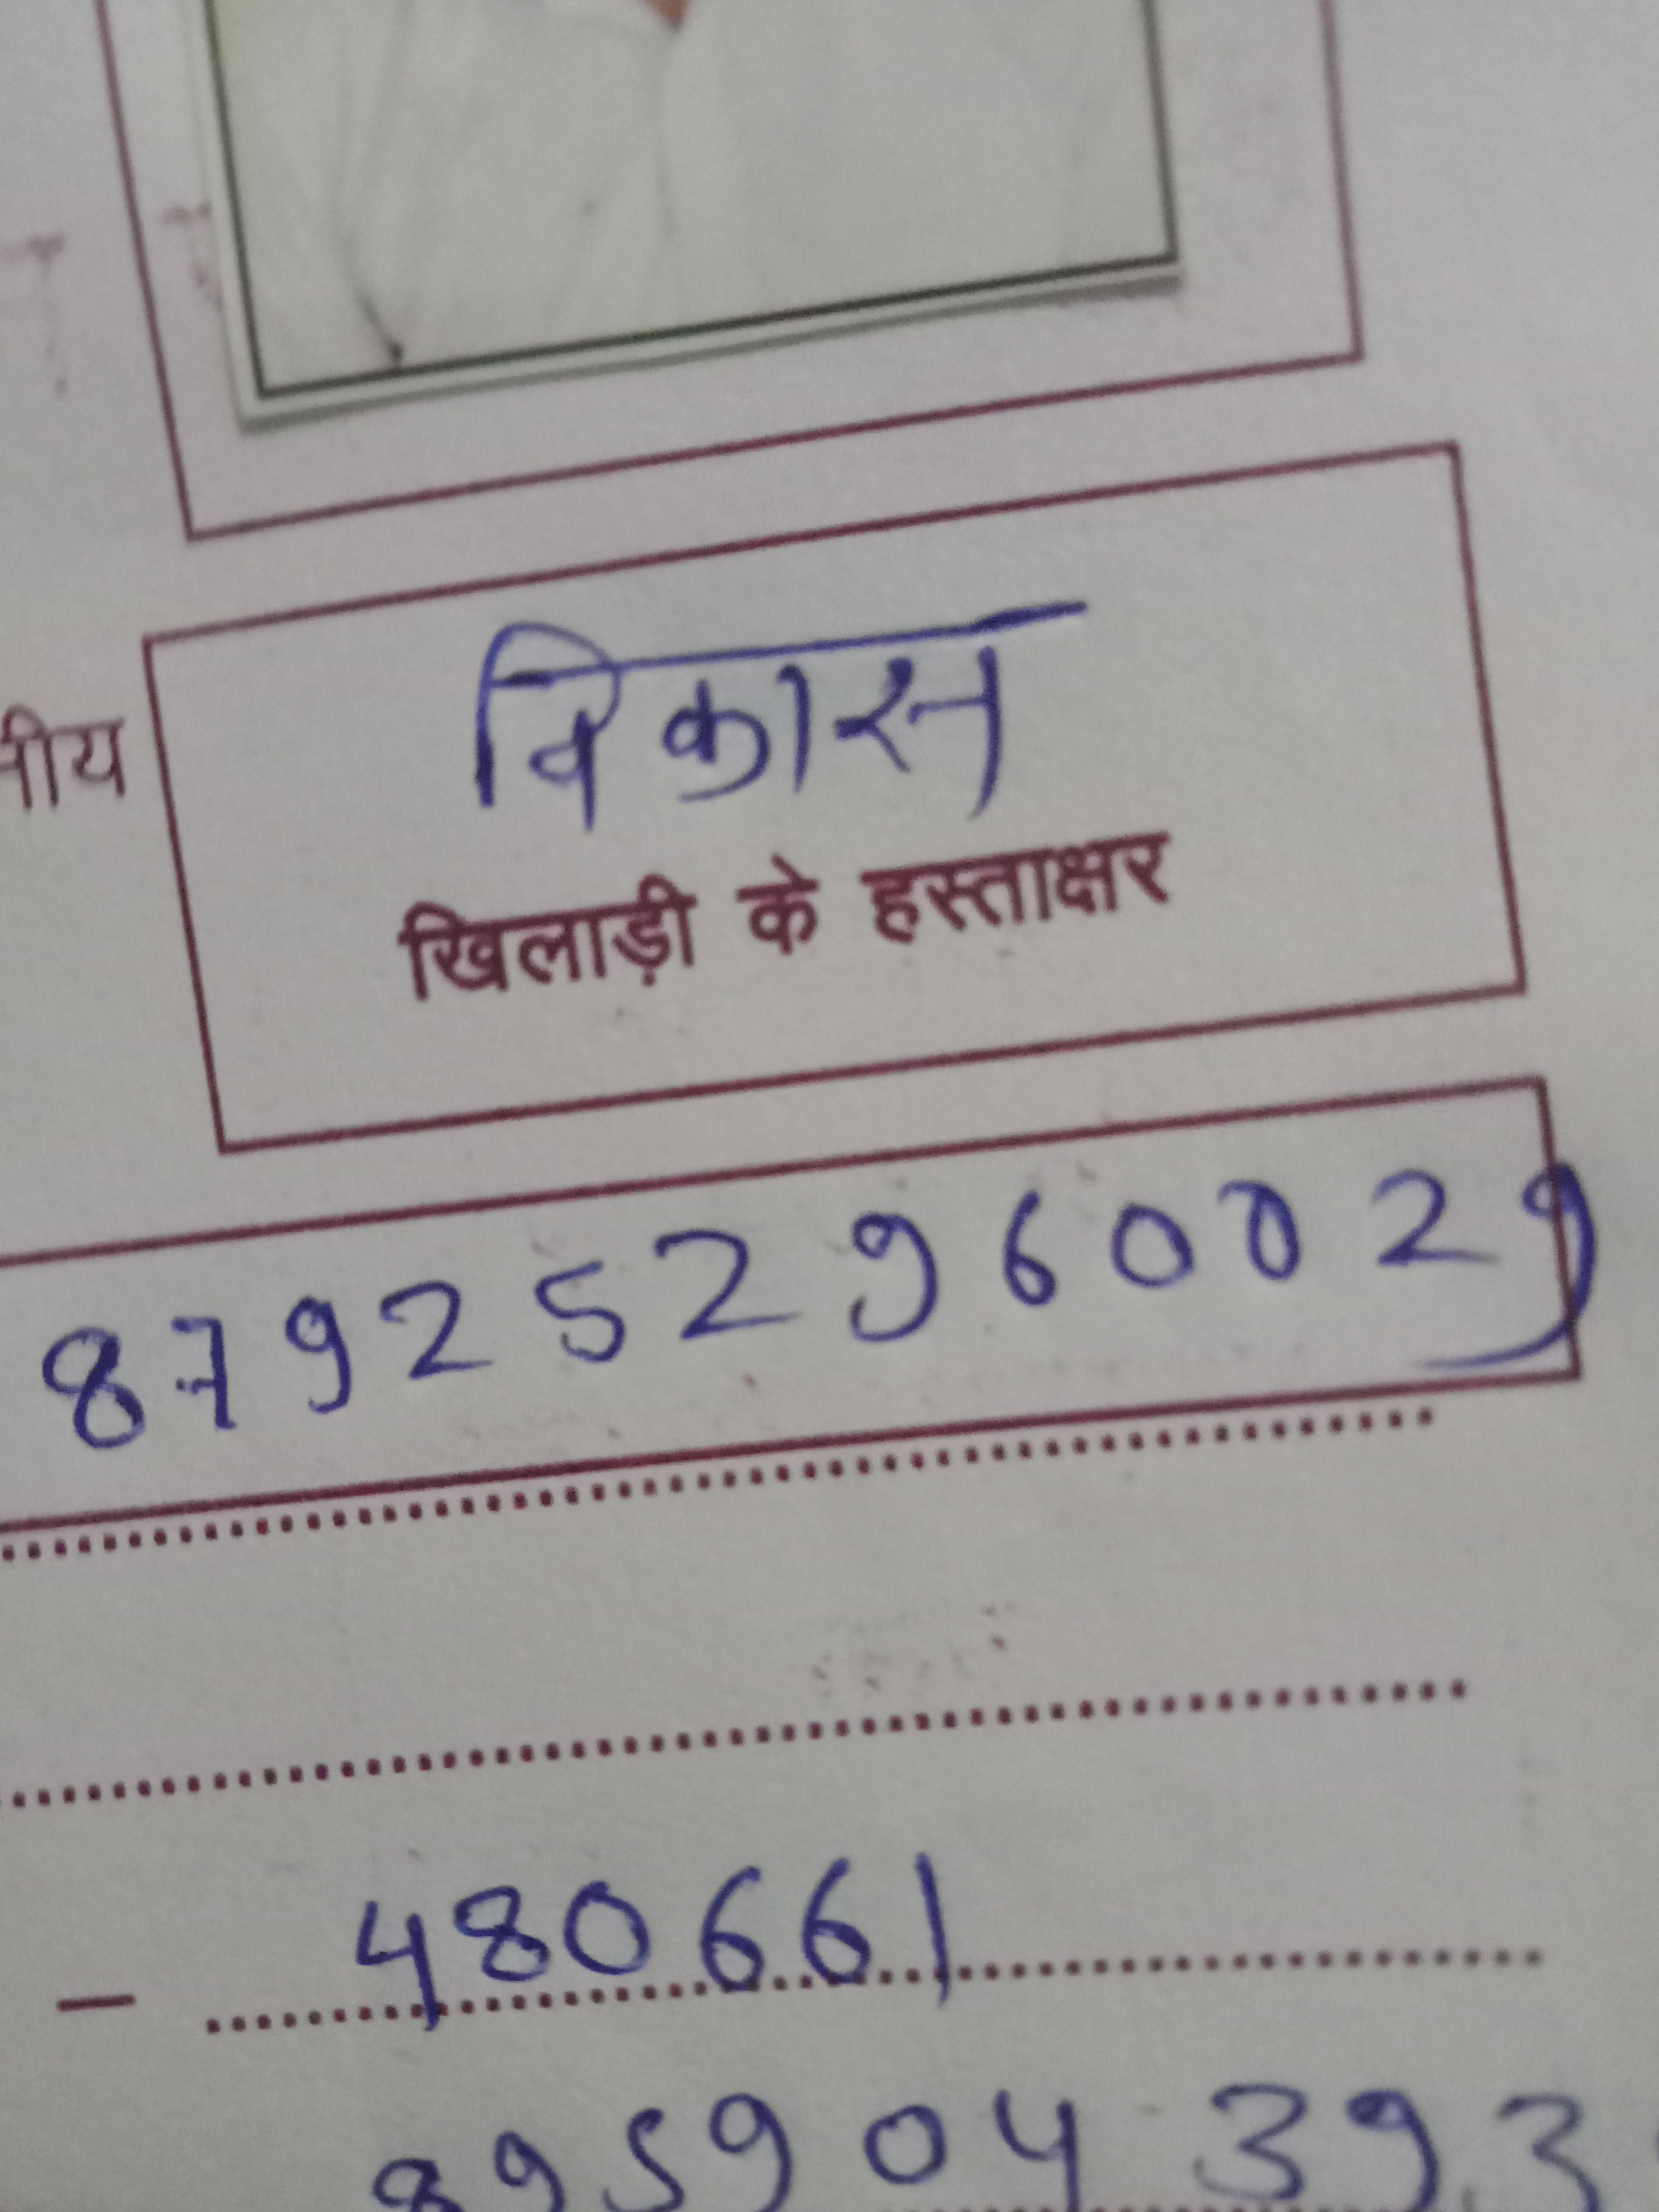 विकास
नीय
खिलाड़ी के हस्ताक्षर
879252960029
– 480661
895904393